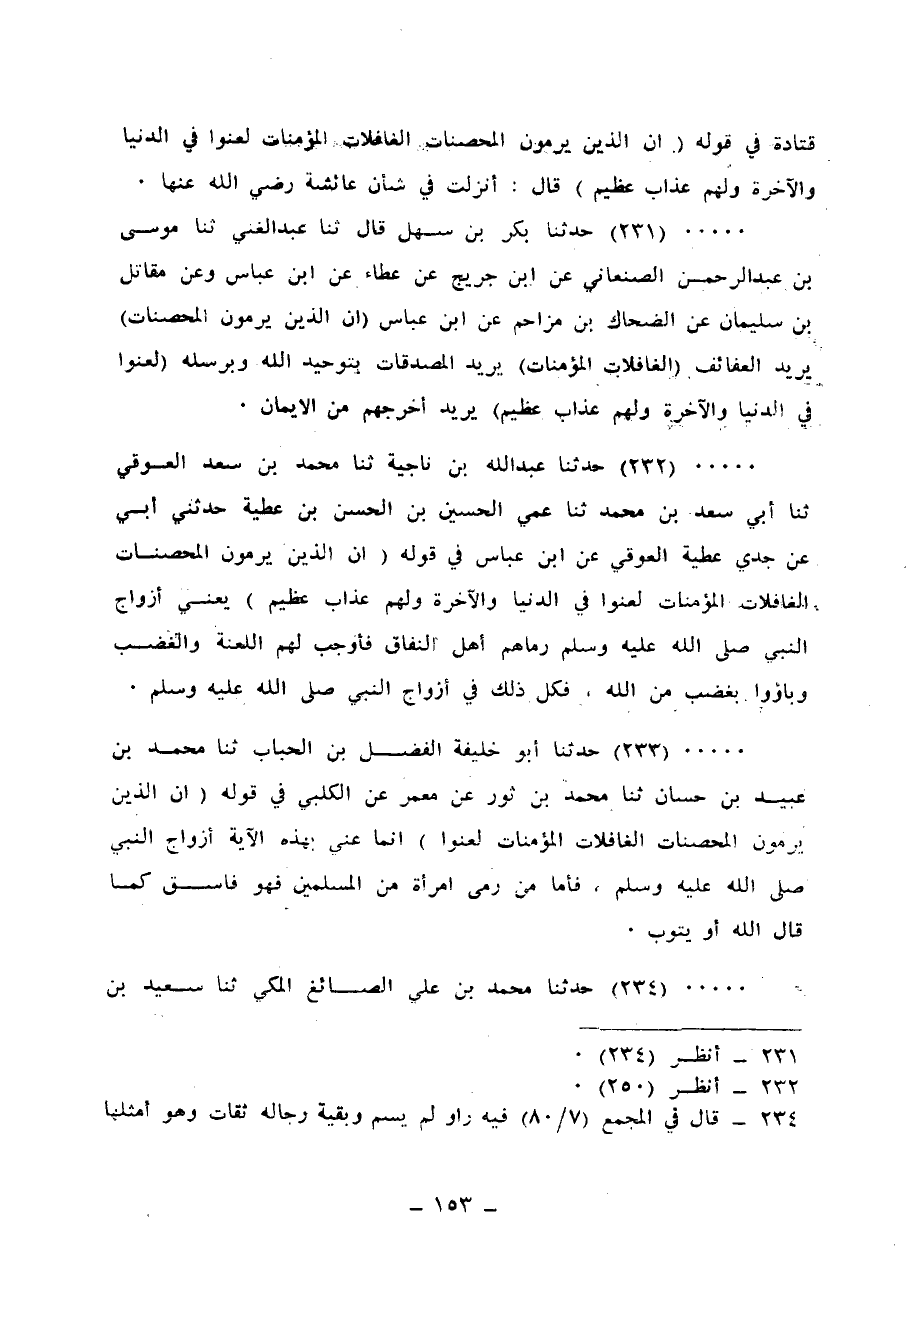 قتادة في قوله ( ان الذين يرمون المحصنات الغافلات المؤمنات لعنوا في الدنيا
والآخرة ولهم عذاب عظيم ) قال : أنزلت في شأن عائشة رضي الله عنها ٠
٠٠٠٠٠ (٢٣١) حدثنا بكر بن سـهل قال ثنا عبدالغني ثنا موسـى
بن عبدالرحمـن الصنعاني عن ابن جريج عن عطاء عن ابن عباس وعن مقاتل
بن سليمان عن الضحاك بن مزاحم عن ابن عباس (ان الذين يرمون المحصنات)
يريد العفائف (الغافلات المؤمنات) يريد المصدقات بتوحيد الله وبرسله (لعنوا
في الدنيا والآخرة ولهم عذاب عظيم) يريد أخرجهم من الايمان ٠
٠٠٠٠٠ (٢٣٢) حدثنا عبدالله بن ناجية ثنا محمد بن سعد العـوفي
ثنا أبي سعد بن محمد ثنا عمي الحسين بن الحسن بن عطية حدثني أبـي
عن جدي عطية العوفي عن ابن عباس في قوله ( ان الذين يرمون المحصنـات
الغافلات المؤمنات لعنوا في الدنيا والآخرة ولهم عذاب عظيم ) يعنـي أزواج
النبي صلى الله عليه وسلم رماهم أهل النفاق فأوجب لهم اللعنة والغضـب
وباؤوا بغضب من الله ، فكل ذلك في أزواج النبي صلى الله عليه وسلم ٠
٠٠٠٠٠ (٢٣٣) حدثنا أبو خليفة الفضـل بن الحباب ثنا محمـد بن
عبيـد بن حسان ثنا محمد بن ثور عن معمر عن الكلبي في قوله ( ان الذين
يرمون المحصنات الغافلات المؤمنات لعنوا ) انما عني بهذه الآية أزواج النبي
صلى الله عليه وسلم ، فأما من رمى امرأة من المسلمين فهو فاسـق كمـا
قال الله أو يتوب ٠
٠٠٠٠٠ (٢٣٤) حدثنا محمد بن علي الصـائغ المكي ثنا سـعيد بن
٢٣١ ــ أنظـر (٢٣٤) ٠
٢٣٢ ــ أنظـر (٢٥٠) ٠
٢٣٤ ــ قال في المجمع (٨٠/٧) فيه راو لم يسم وبقية رجاله ثقات وهو أمثلها
ــ ١٥٣ ــ